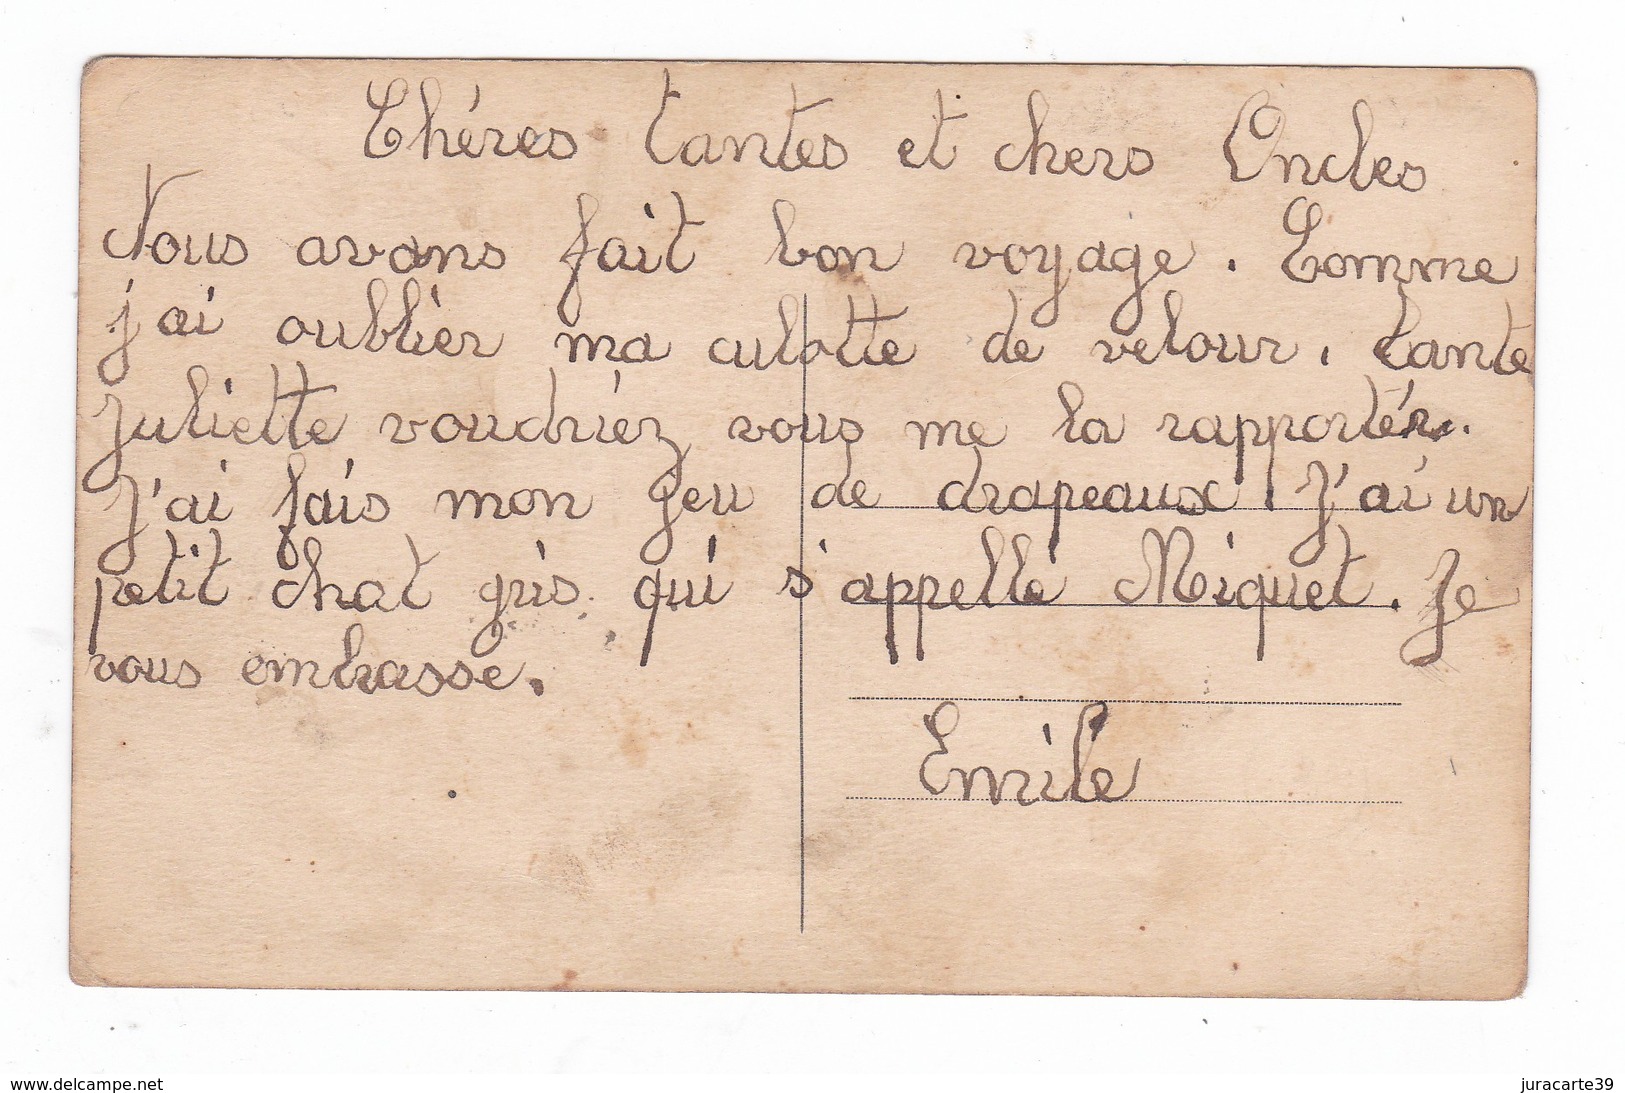 Chéres tantes et chers Oncles
Nous avons fait bon voyage. Comme
j'ai oublier ma culotte de velour. tante
Juliette voudriez vous me la rapportér.
J'ai fais mon jeu de drapeaux. J'ai un
petit chat gris qui s'appelle Miquet. Je
vous embrasse.
Emile
www.delcampe.net
juracarte39